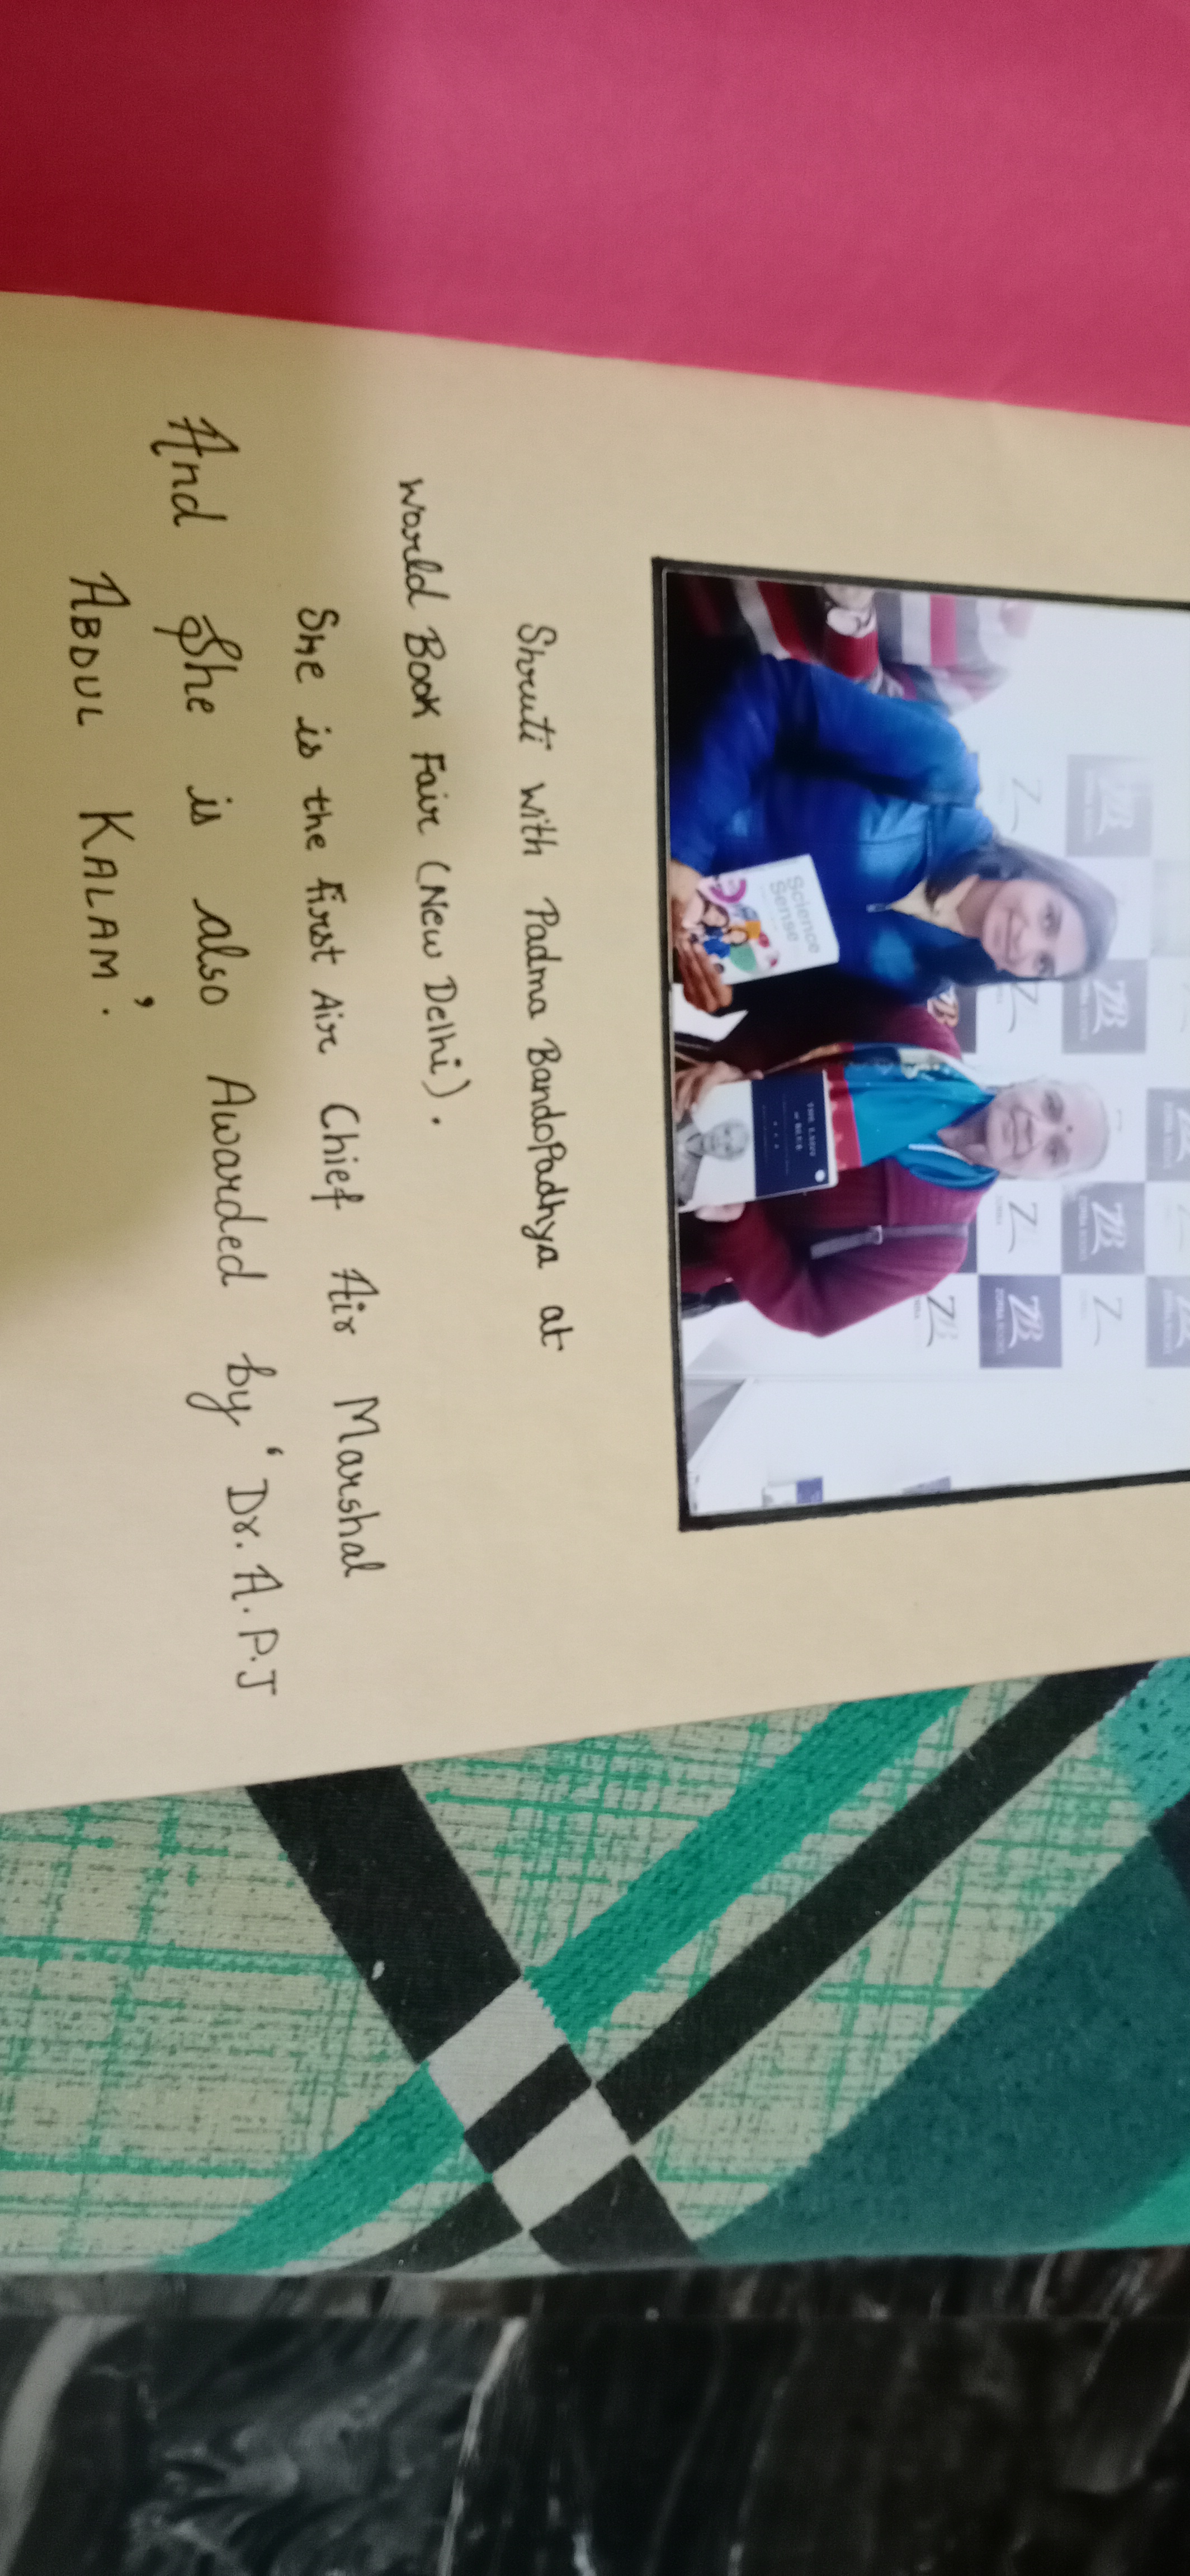 Science
Sense
THE LADY
ZB
ZORBA BOOKS
Shruti with Padma Bandopadhya at
world Book Fair (New Delhi).
She is the first Air Chief Air Marshal
And She is also Awarded by 'Dr. A.P.J
ABDUL KALAM'.